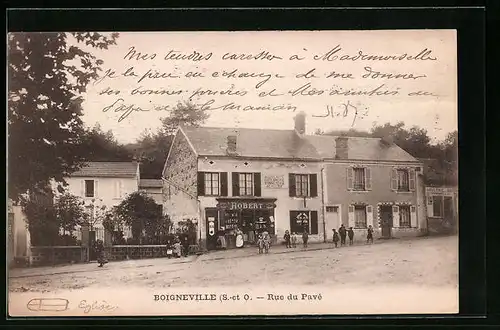 Mes tendres caresses à Mademoiselle
je la prie en échange de me donner
ses bonnes pensées et mes amitiés au
Papa et la maman
HOBERT
BOIGNEVILLE (S.-et O. — Rue du Pavé
Eglise